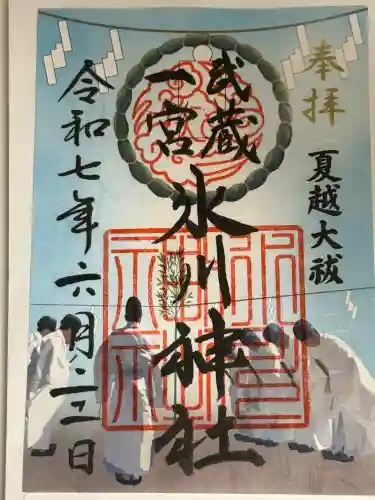 奉拝
夏越大祓
武蔵
一宮
氷川神社
令和七年六月二二日